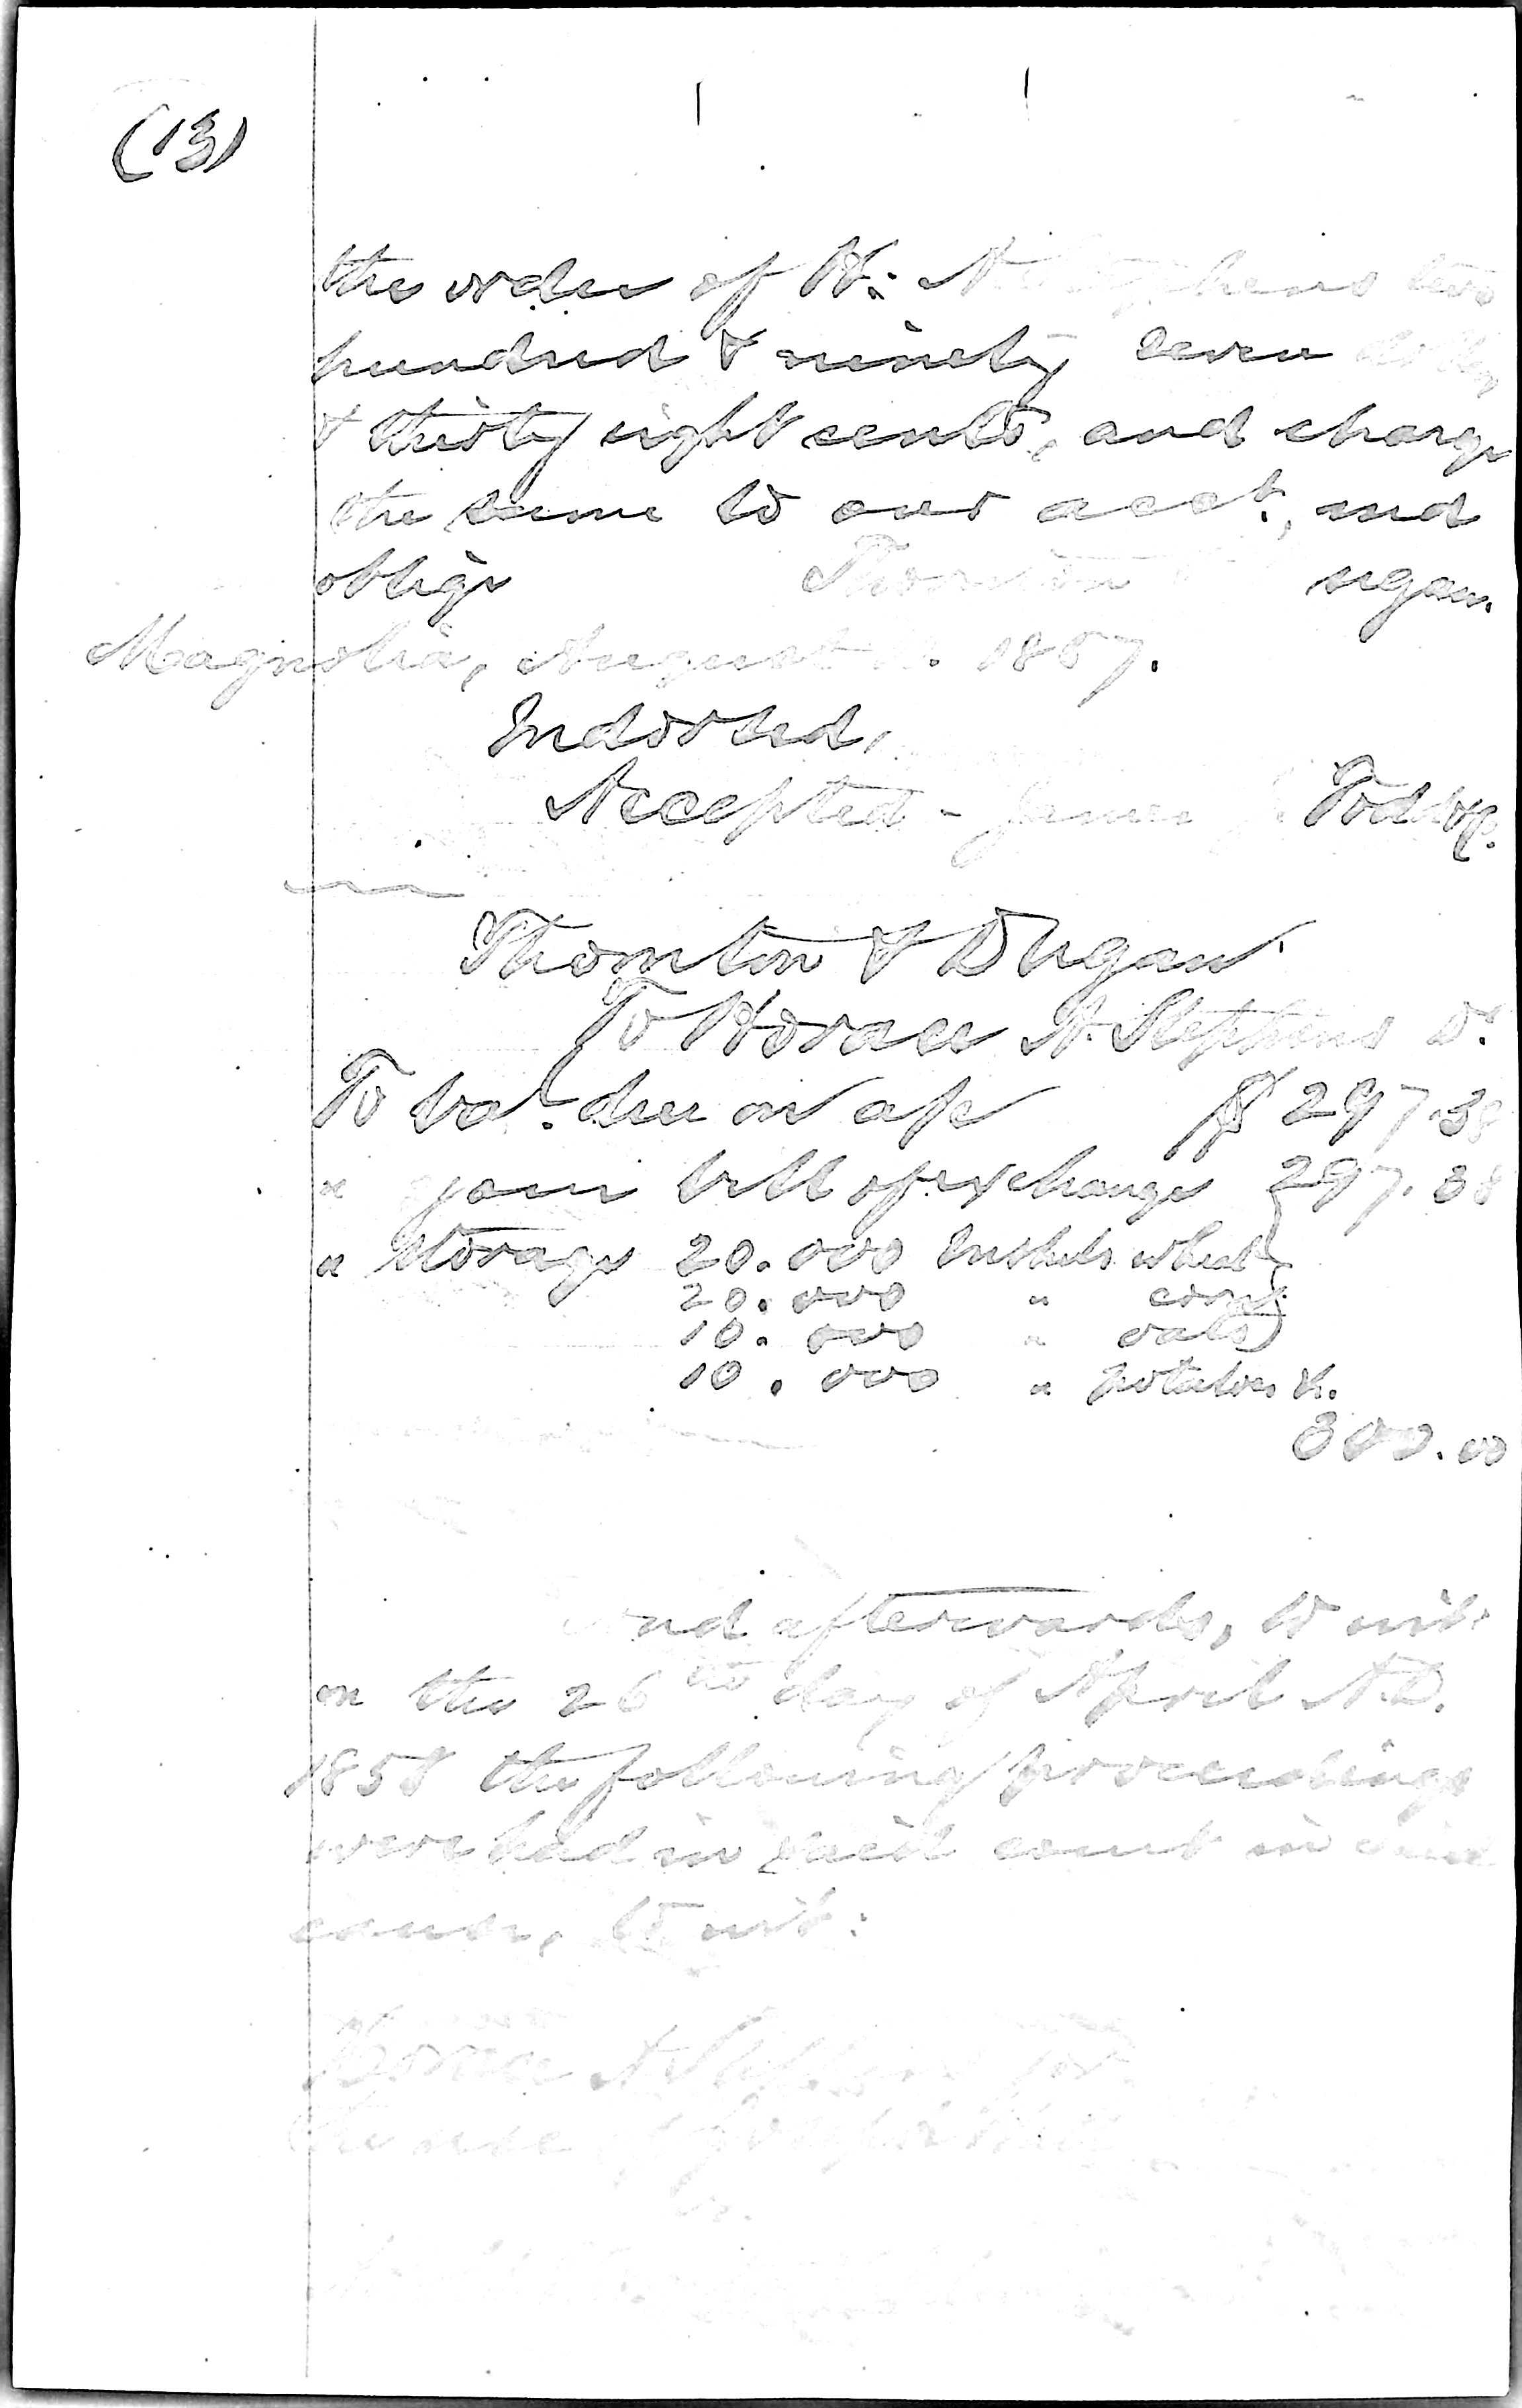 (13)
the order of H. A. Stephens two
hundred & ninety seven dollars
& thirty eight cents, and charge
the same to our acct., and
oblige Thornton
Magnolia, August 1857.
Indorsed,
Accepted - James
Thornton & Dugan
To Horace A. Stephens Dr.
To bal. due on a/c $297.38
" your bill of exchange 297.38
" Storage 20.000 bushels wheat
20.000 " corn
10.000 " oats
10.000 " potatoes &c.
300.00
nd afterwards, to wit:
on the 26th day of April A.D.
1858 the following proceedings
were had in said court in said
cause, to wit:
Horace A. Stephens for
the use of